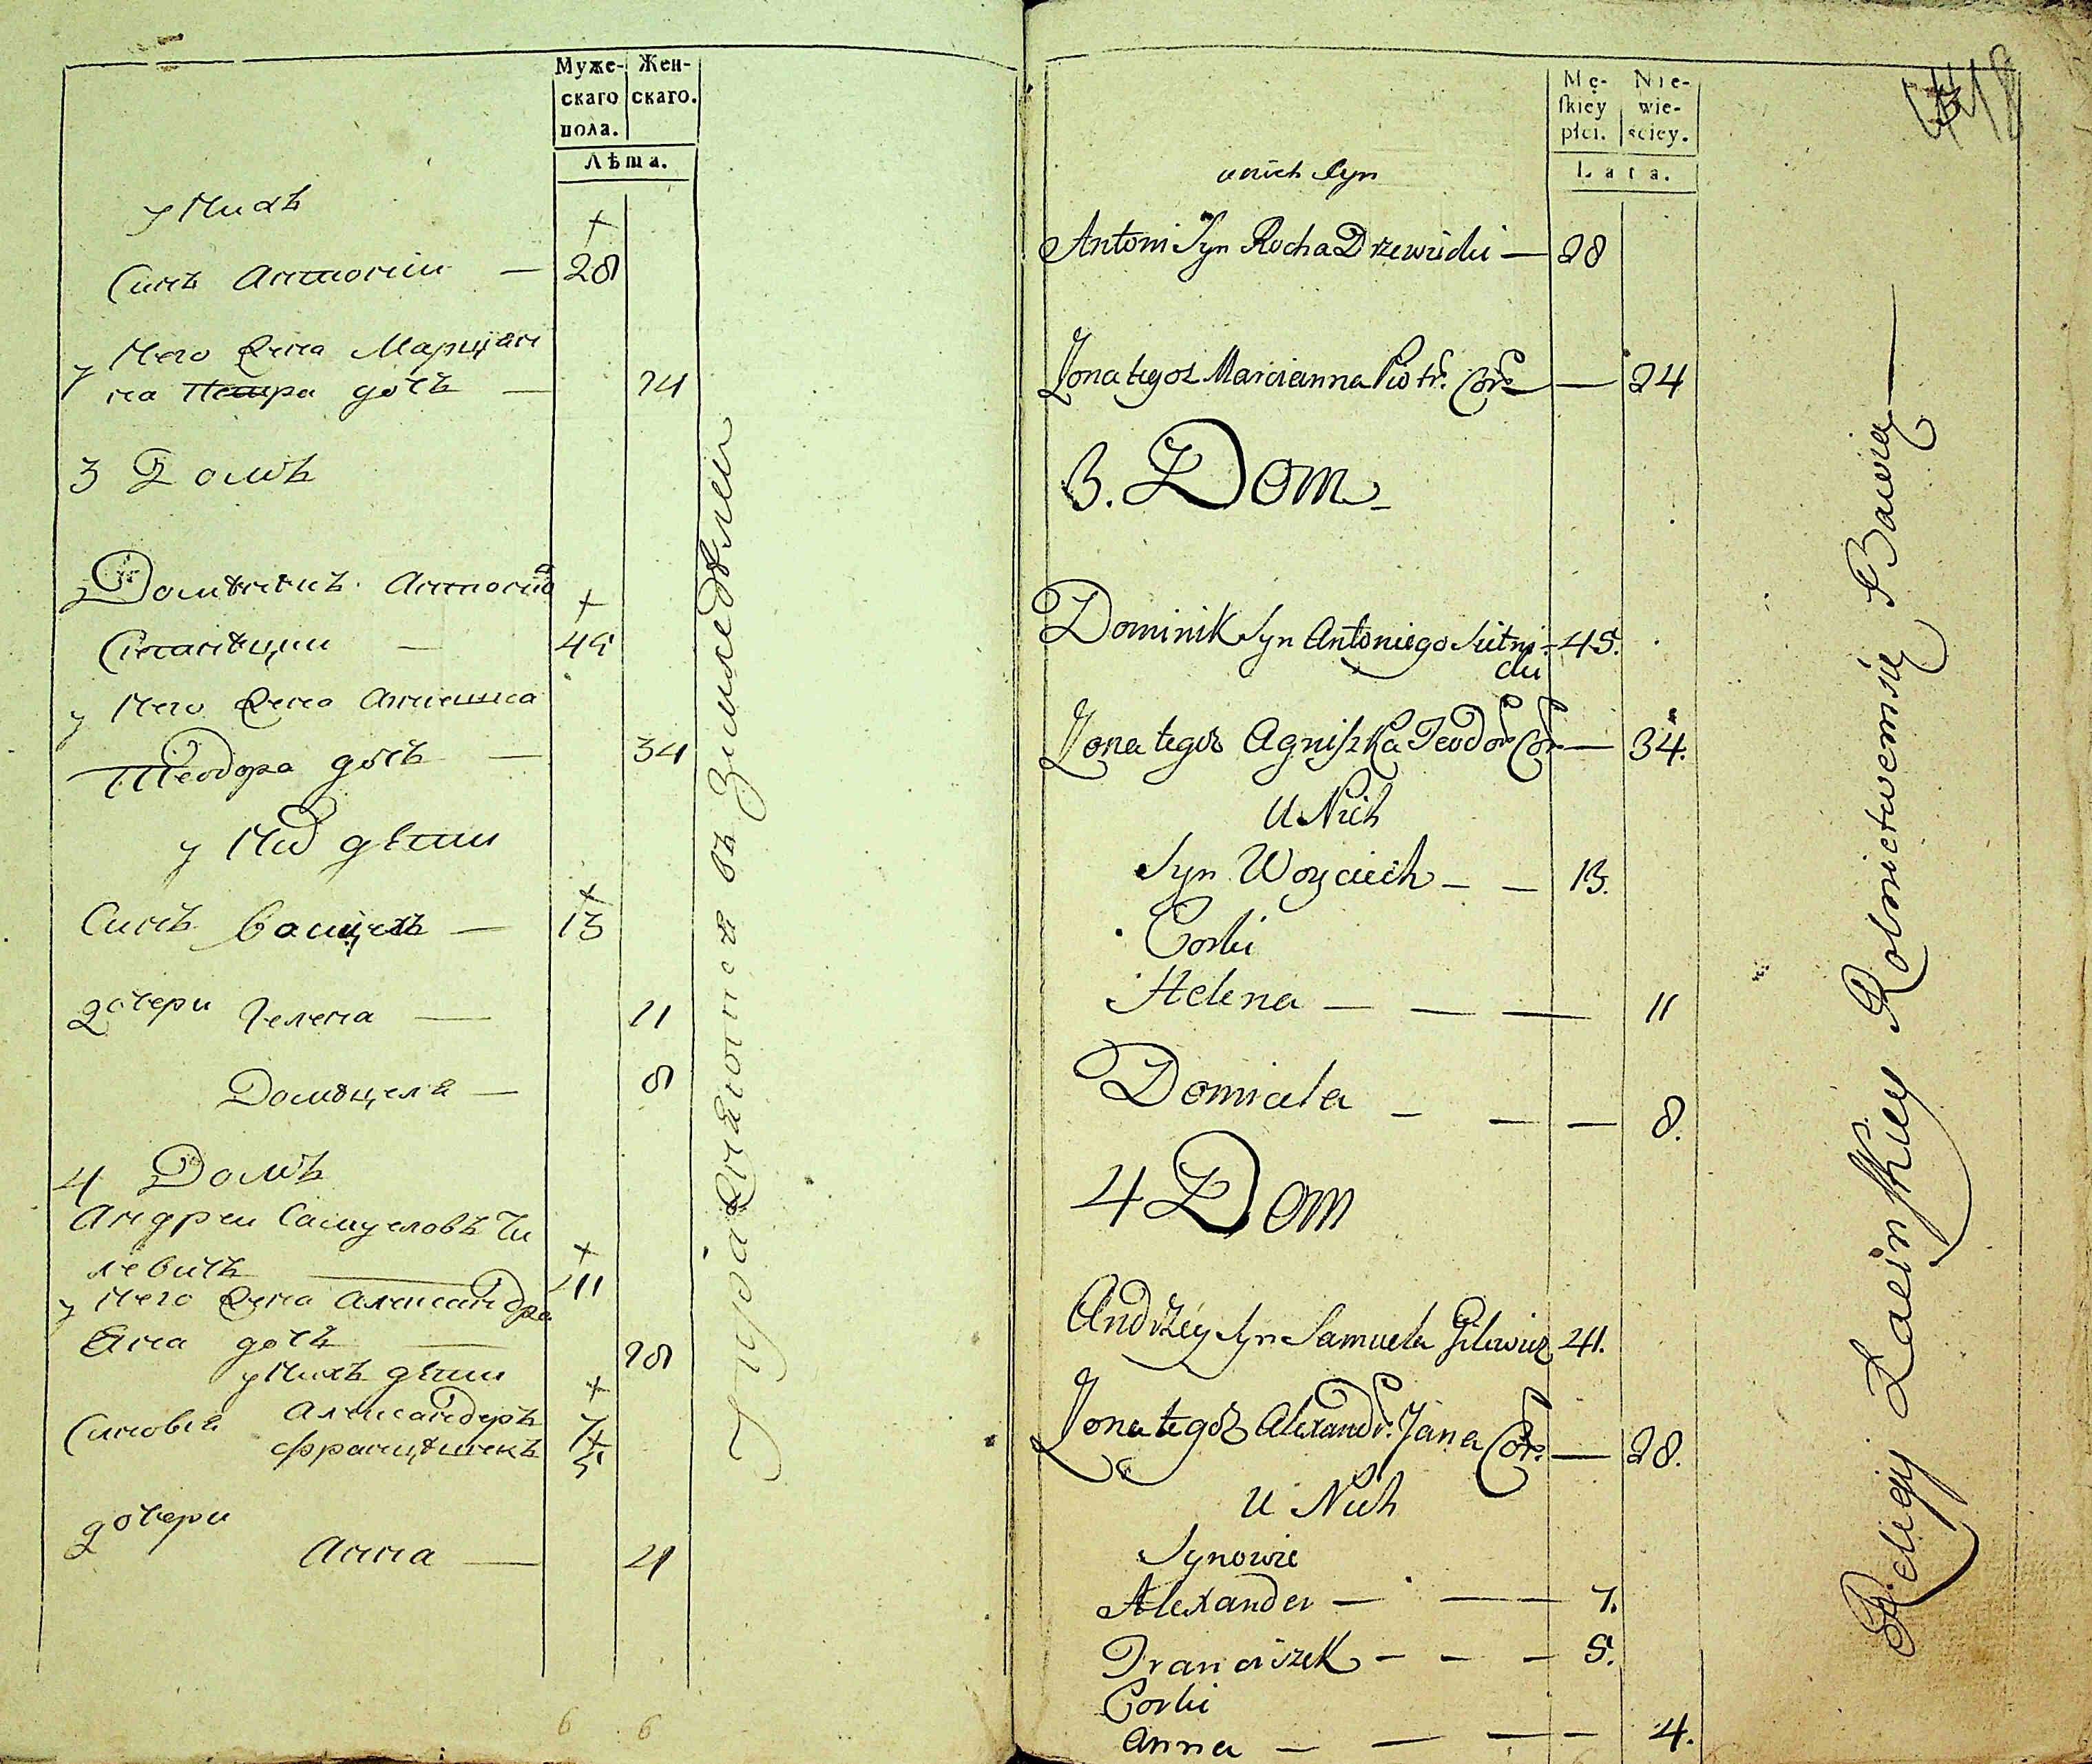 Муже-
скаго
пола.
Жен-
скаго.
Лѣта.
у Нихъ
Синъ Антоній — 28
у Него Жена Марціан
на Петра дочъ — 24
3 Домъ
Доминикъ Антонія
— 45
у Него Жена Агнешка
Теодора дочъ — 34
у Них дѣти
Синъ Вацехъ — 13
дочери Гелена — 11
Домицеля — 8
4 Домъ
Андрей Самуеловъ Ги
левичъ — 41
у Него Жена Александра
Яна дочъ — 28
у Нихъ дѣти
Синовя Александеръ 7
Францишекъ 5
дочери
Анна — 4
упражняются въ Земледелии
6 6
Mę-
skiey
płci.
Nie-
wie-
ściey.
Lata.
unich Syn
Antoni Syn Rocha Drzewiecki — 28
Żona tegoż Marcianna Piotr. Cor. — 24
3. Dom
Dominik Syn Antoniego Sitni- 45.
cki
Żona tegoż Agniszka Teodor Cor — 34.
U Nich
Syn Woyciech — — 13.
Corki
Helena — — — 11
Domicela — — — 8.
4 Dom
Andrzéy Syn Samuela Gilewicz 41.
Żona tegoż Alexandr. Jana Cor. — 28.
U Nich
Synowie
Alexander — — 7.
Franciszek — — — 5.
Corki
Anna — — — — 4.
Religij Łacinskiey Rolnictwem się Bawią —